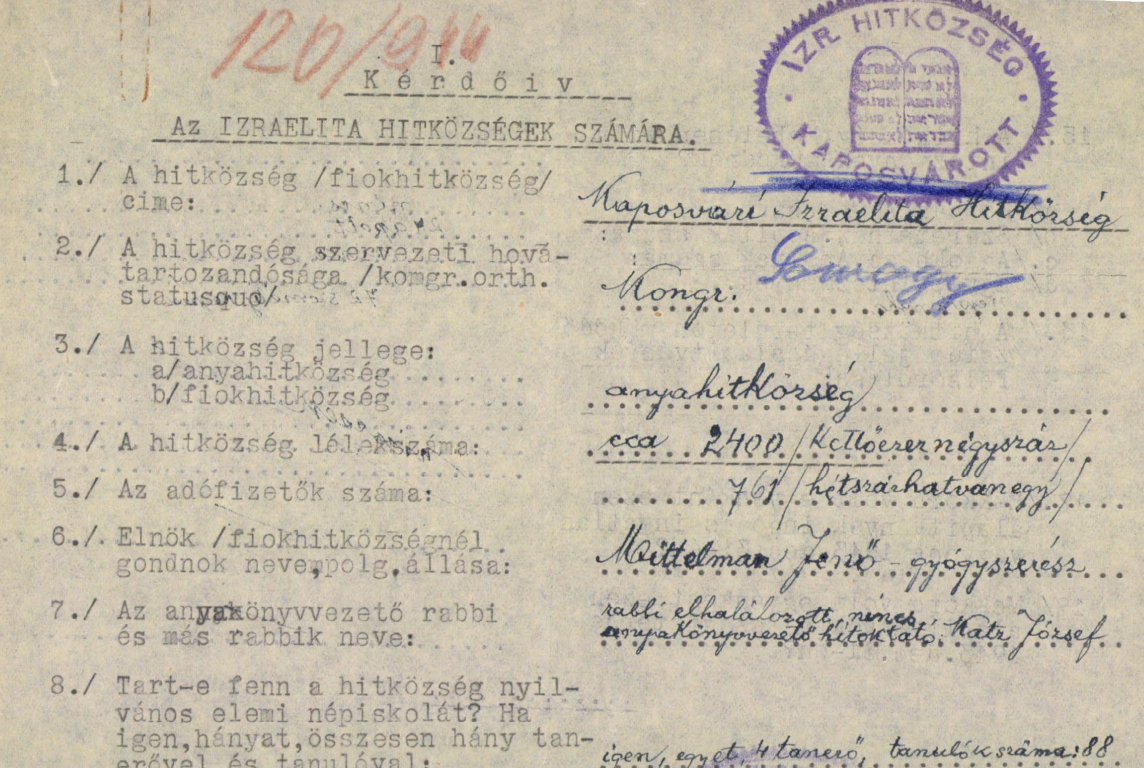 120/944
I.
Kérdőiv
Az IZRAELITA HITKÖZSÉGEK SZÁMÁRA.
IZR HITKÖZSÉG
KAPOSVÁROTT
1./ A hitközség /fiokhitközség/
cime:
Kaposvári Izraelita Hitközség
2./ A hitközség szervezeti hová-
tartozandósága /komgr.orth.
statusquo/
Somogy
Kongr.
3./ A hitközség jellege:
a/anyahitközség
b/fiokhitközség
anyahitközség
4./ A hitközség lélekszáma:
cca 2400/Kettőezernégyszáz/
5./ Az adófizetők száma:
761/hétszázhatvanegy/
6./ Elnök /fiokhitközségnél
gondnok neve,polg.állása:
Mittelman Jenő - gyógyszerész
7./ Az anyakönyvvezető rabbi
és más rabbik neve:
rabbi elhalálozott, nincs,
anyakönyvvezető hitoktató: Katz József
8./ Tart-e fenn a hitközség nyil-
vános elemi népiskolát? Ha
igen,hányat,összesen hány tan-
erővel és tanulóval:
igen, egyet, 4 tanerő, tanulók száma: 88